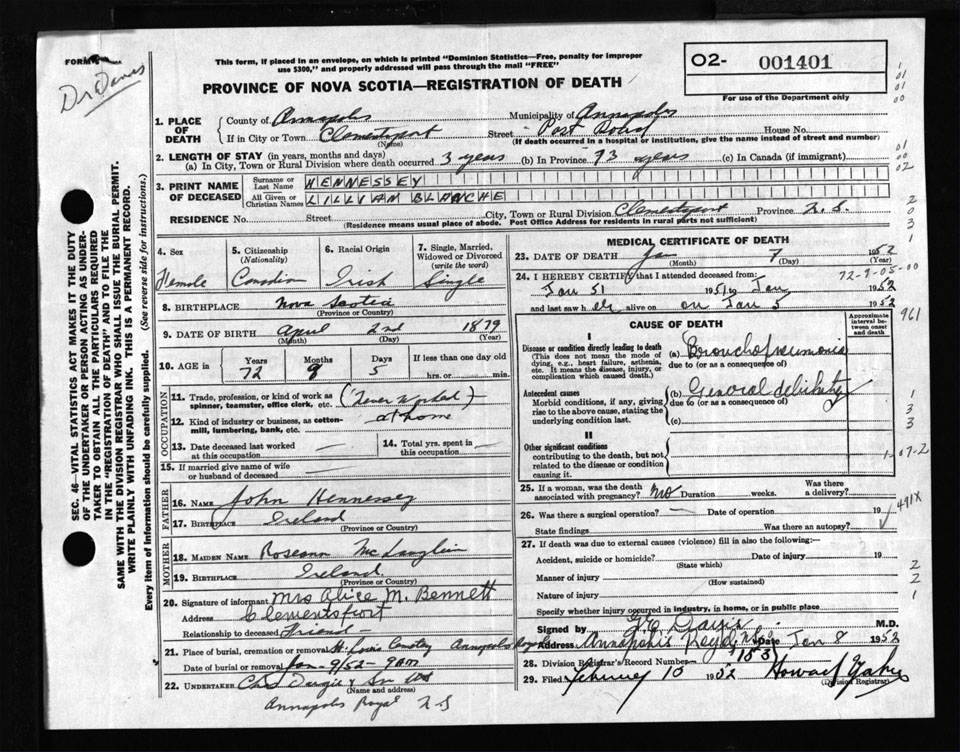 FORM
Dr Davis
This form, if placed in an envelope, on which is printed "Dominion Statistics—Free, penalty for improper
use $300," and properly addressed will pass through the mail "FREE"
PROVINCE OF NOVA SCOTIA—REGISTRATION OF DEATH
O2- 001401
For use of the Department only
1. PLACE OF DEATH
County of Annapolis Municipality of Annapolis
If in City or Town Clementsport (Name) Street House No.
(If death occurred in a hospital or institution, give the name instead of street and number)
2. LENGTH OF STAY (in years, months and days)
(a) In City, Town or Rural Division where death occurred 3 years (b) In Province 73 years (c) In Canada (if immigrant)
3. PRINT NAME OF DECEASED
Surname or Last Name HENNESSEY
All Given or Christian Names LILLIAN BLANCHE
RESIDENCE No. Street City, Town or Rural Division Clementsport Province N.S.
(Residence means usual place of abode. Post Office Address for Residents in rural parts not sufficient)
4. Sex Female
5. Citizenship (Nationality) Canadian
6. Racial Origin Irish
7. Single, Married, Widowed or Divorced (write the word) Single
8. BIRTHPLACE Nova Scotia
(Province or Country)
9. DATE OF BIRTH April 2nd 1879
(Month) (Day) (Year)
10. AGE in Years 72 Months 9 Days 5 If less than one day old hrs. or min.
OCCUPATION
11. Trade, profession, or kind of work as spinner, teamster, office clerk, etc. (Never Worked)
12. Kind of industry or business, as cotton-mill, lumbering, bank, etc. at home
13. Date deceased last worked at this occupation
14. Total yrs. spent in this occupation
15. If married give name of wife or husband of deceased
FATHER
16. NAME John Hennessey
17. BIRTHPLACE Ireland
(Province or Country)
MOTHER
18. MAIDEN NAME Roseann
19. BIRTHPLACE Ireland.
(Province or Country)
20. Signature of informant Mrs Alice M. Bennett
Address Clementsport
Relationship to deceased Friend
21. Place of burial, cremation or removal St. Louis Annapolis Royal
Date of burial or removal Jan 9/52
22. UNDERTAKER
(Name and address)
Annapolis Royal N S
MEDICAL CERTIFICATE OF DEATH
23. DATE OF DEATH Jan 7 1952
(Month) (Day) (Year)
24. I HEREBY CERTIFY that I attended deceased from:
72-9-05-00
Jan 51 1951 to Jan 1952
and last saw her alive on Jan 5 1952
961
CAUSE OF DEATH
Approximate interval between onset and death
I
Disease or condition directly leading to death (a) Bronchopneumonia
(This does not mean the mode of dying, e.g., heart failure, asthenia, etc. It means the disease, injury, or complication which caused death.)
due to (or as a consequence of)
Antecedent causes (b) General debility
Morbid conditions, if any, giving rise to the above cause, stating the underlying condition last.
due to (or as a consequence of)
(c)
II
Other significant conditions
contributing to the death, but not related to the disease or condition causing it.
1-07-2
25. If a woman, was the death associated with pregnancy? no Duration weeks. Was there a delivery?
491X
26. Was there a surgical operation? — Date of operation 19
State findings Was there an autopsy?
27. If death was due to external causes (violence) fill in also the following:
Accident, suicide or homicide? Date of injury 19
(State which)
Manner of injury
(How sustained)
Nature of injury
Specify whether injury occurred in industry, in home, or in public place
Signed by Davis M.D.
Address Annapolis Royal NS Date Jan 8 1952
28. Division Registrar's Record Number 153
29. Filed February 1952 Howard
(Division Registrar)
SEC. 46—VITAL STATISTICS ACT MAKES IT THE DUTY
OF THE UNDERTAKER OR PERSON ACTING AS UNDER-
TAKER TO OBTAIN ALL THE PARTICULARS REQUIRED
IN THE "REGISTRATION OF DEATH" AND TO FILE THE
SAME WITH THE DIVISION REGISTRAR WHO SHALL ISSUE THE BURIAL PERMIT.
WRITE PLAINLY WITH UNFADING INK. THIS IS A PERMANENT RECORD.
Every item of information should be carefully supplied. (See reverse side for instructions.)